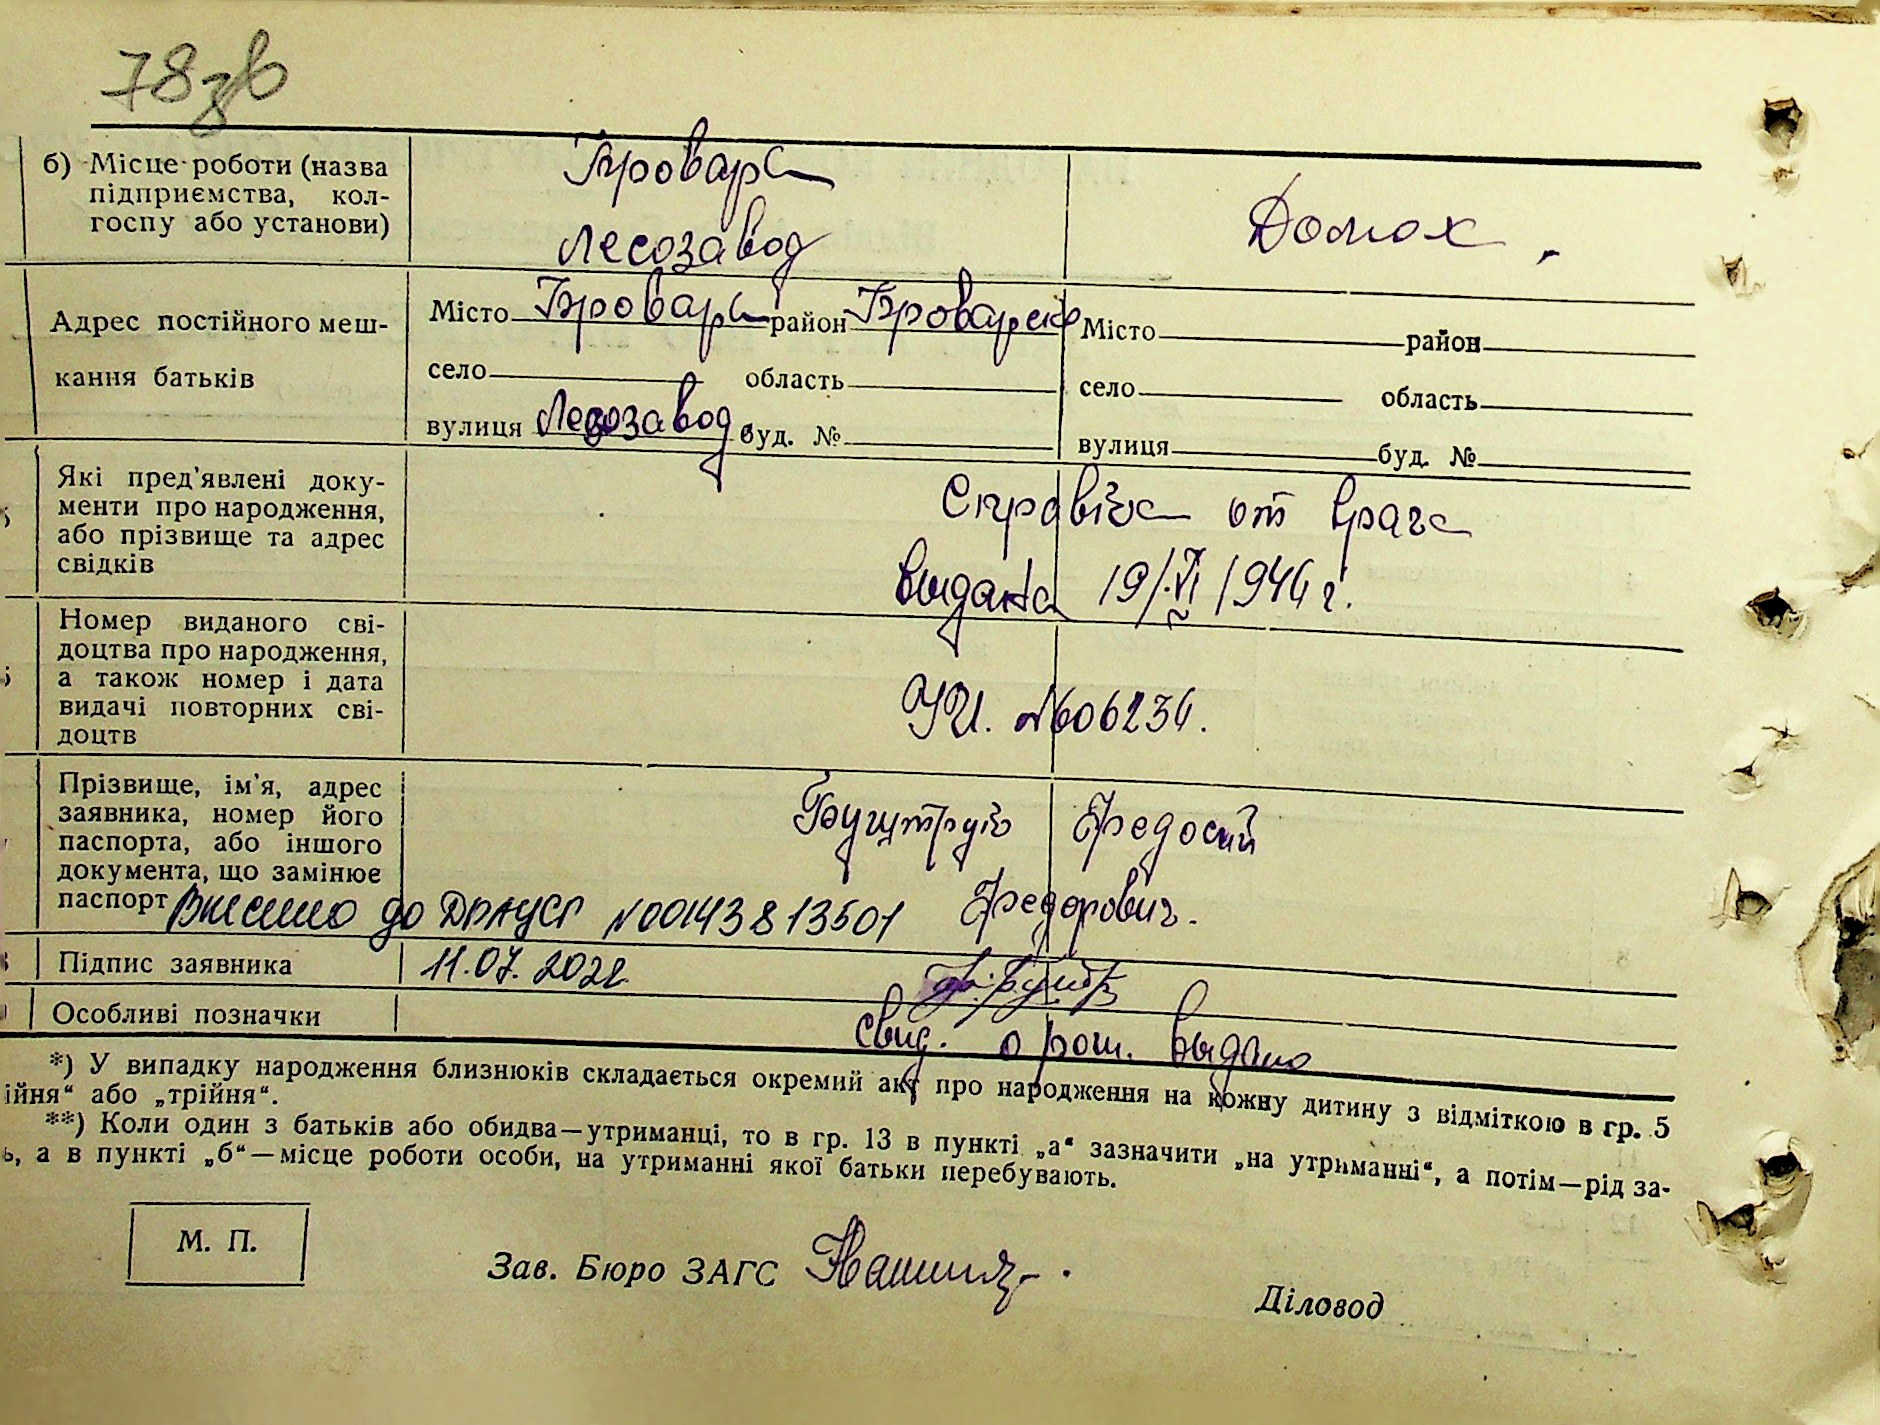 78зв
б) Місце роботи (назва
підприємства, кол-
госпу або установи)
Бровары
лесозавод
Домох.
Адрес постійного меш-
кання батьків
Місто Бровары район Броварск
село область
вулиця Лесозавод буд. №
Місто район
село область
вулиця буд. №
Які пред'явлені доку-
менти про народження,
або прізвище та адрес
свідків
Справка от врача
выдана 19/VI 1944 г.
Номер виданого сві-
доцтва про народження,
а також номер і дата
видачі повторних сві-
доцтв
№606234.
Прізвище, ім'я, адрес
заявника, номер його
паспорта, або іншого
документа, що замінює
паспорт
Федосий
Федорович.
Внесено до ДРАЦСГ №00143813501
Підпис заявника
11.07.2022
Особливі позначки
свид. о рож. выдано
*) У випадку народження близнюків складається окремий акт про народження на кожну дитину з відміткою в гр. 5
ійня“ або „трійня“.
**) Коли один з батьків або обидва—утриманці, то в гр. 13 в пункті „а“ зазначити „на утриманні“, а потім—рід за-
ь, а в пункті „б“—місце роботи особи, на утриманні якої батьки перебувають.
М. П.
Зав. Бюро ЗАГС
Діловод